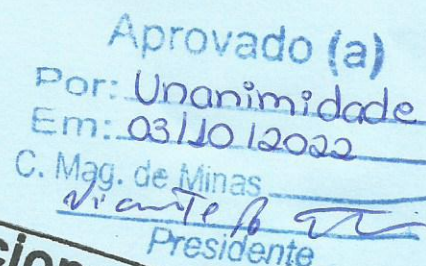 Aprovado (a)
Por: Unanimidade
Em: 03/10/2022
C. Mag. de Minas
Presidente